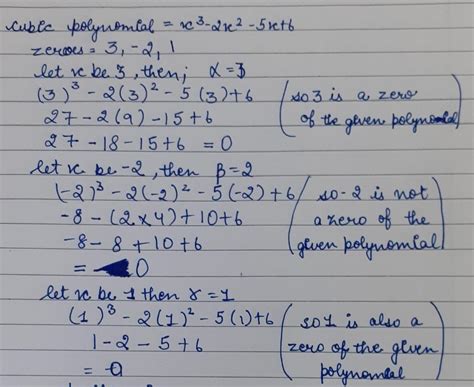 cubic polynomial = x³-2x²-5x+6
zeroes = 3, -2, 1
let x be 3, then; α = 3
(3)³ - 2(3)² - 5(3) + 6
27 - 2(9) - 15 + 6
27 - 18 - 15 + 6 = 0
(so 3 is a zero
of the given polynomial)
let x be -2, then β = 2
(-2)³ - 2(-2)² - 5(-2) + 6
-8 - (2×4) + 10 + 6
-8 - 8 + 10 + 6
= 0
(so -2 is not
a zero of the
given polynomial)
let x be 1 then γ = 1
(1)³ - 2(1)² - 5(1) + 6
1 - 2 - 5 + 6
= 0
(so 1 is also a
zero of the given
polynomial